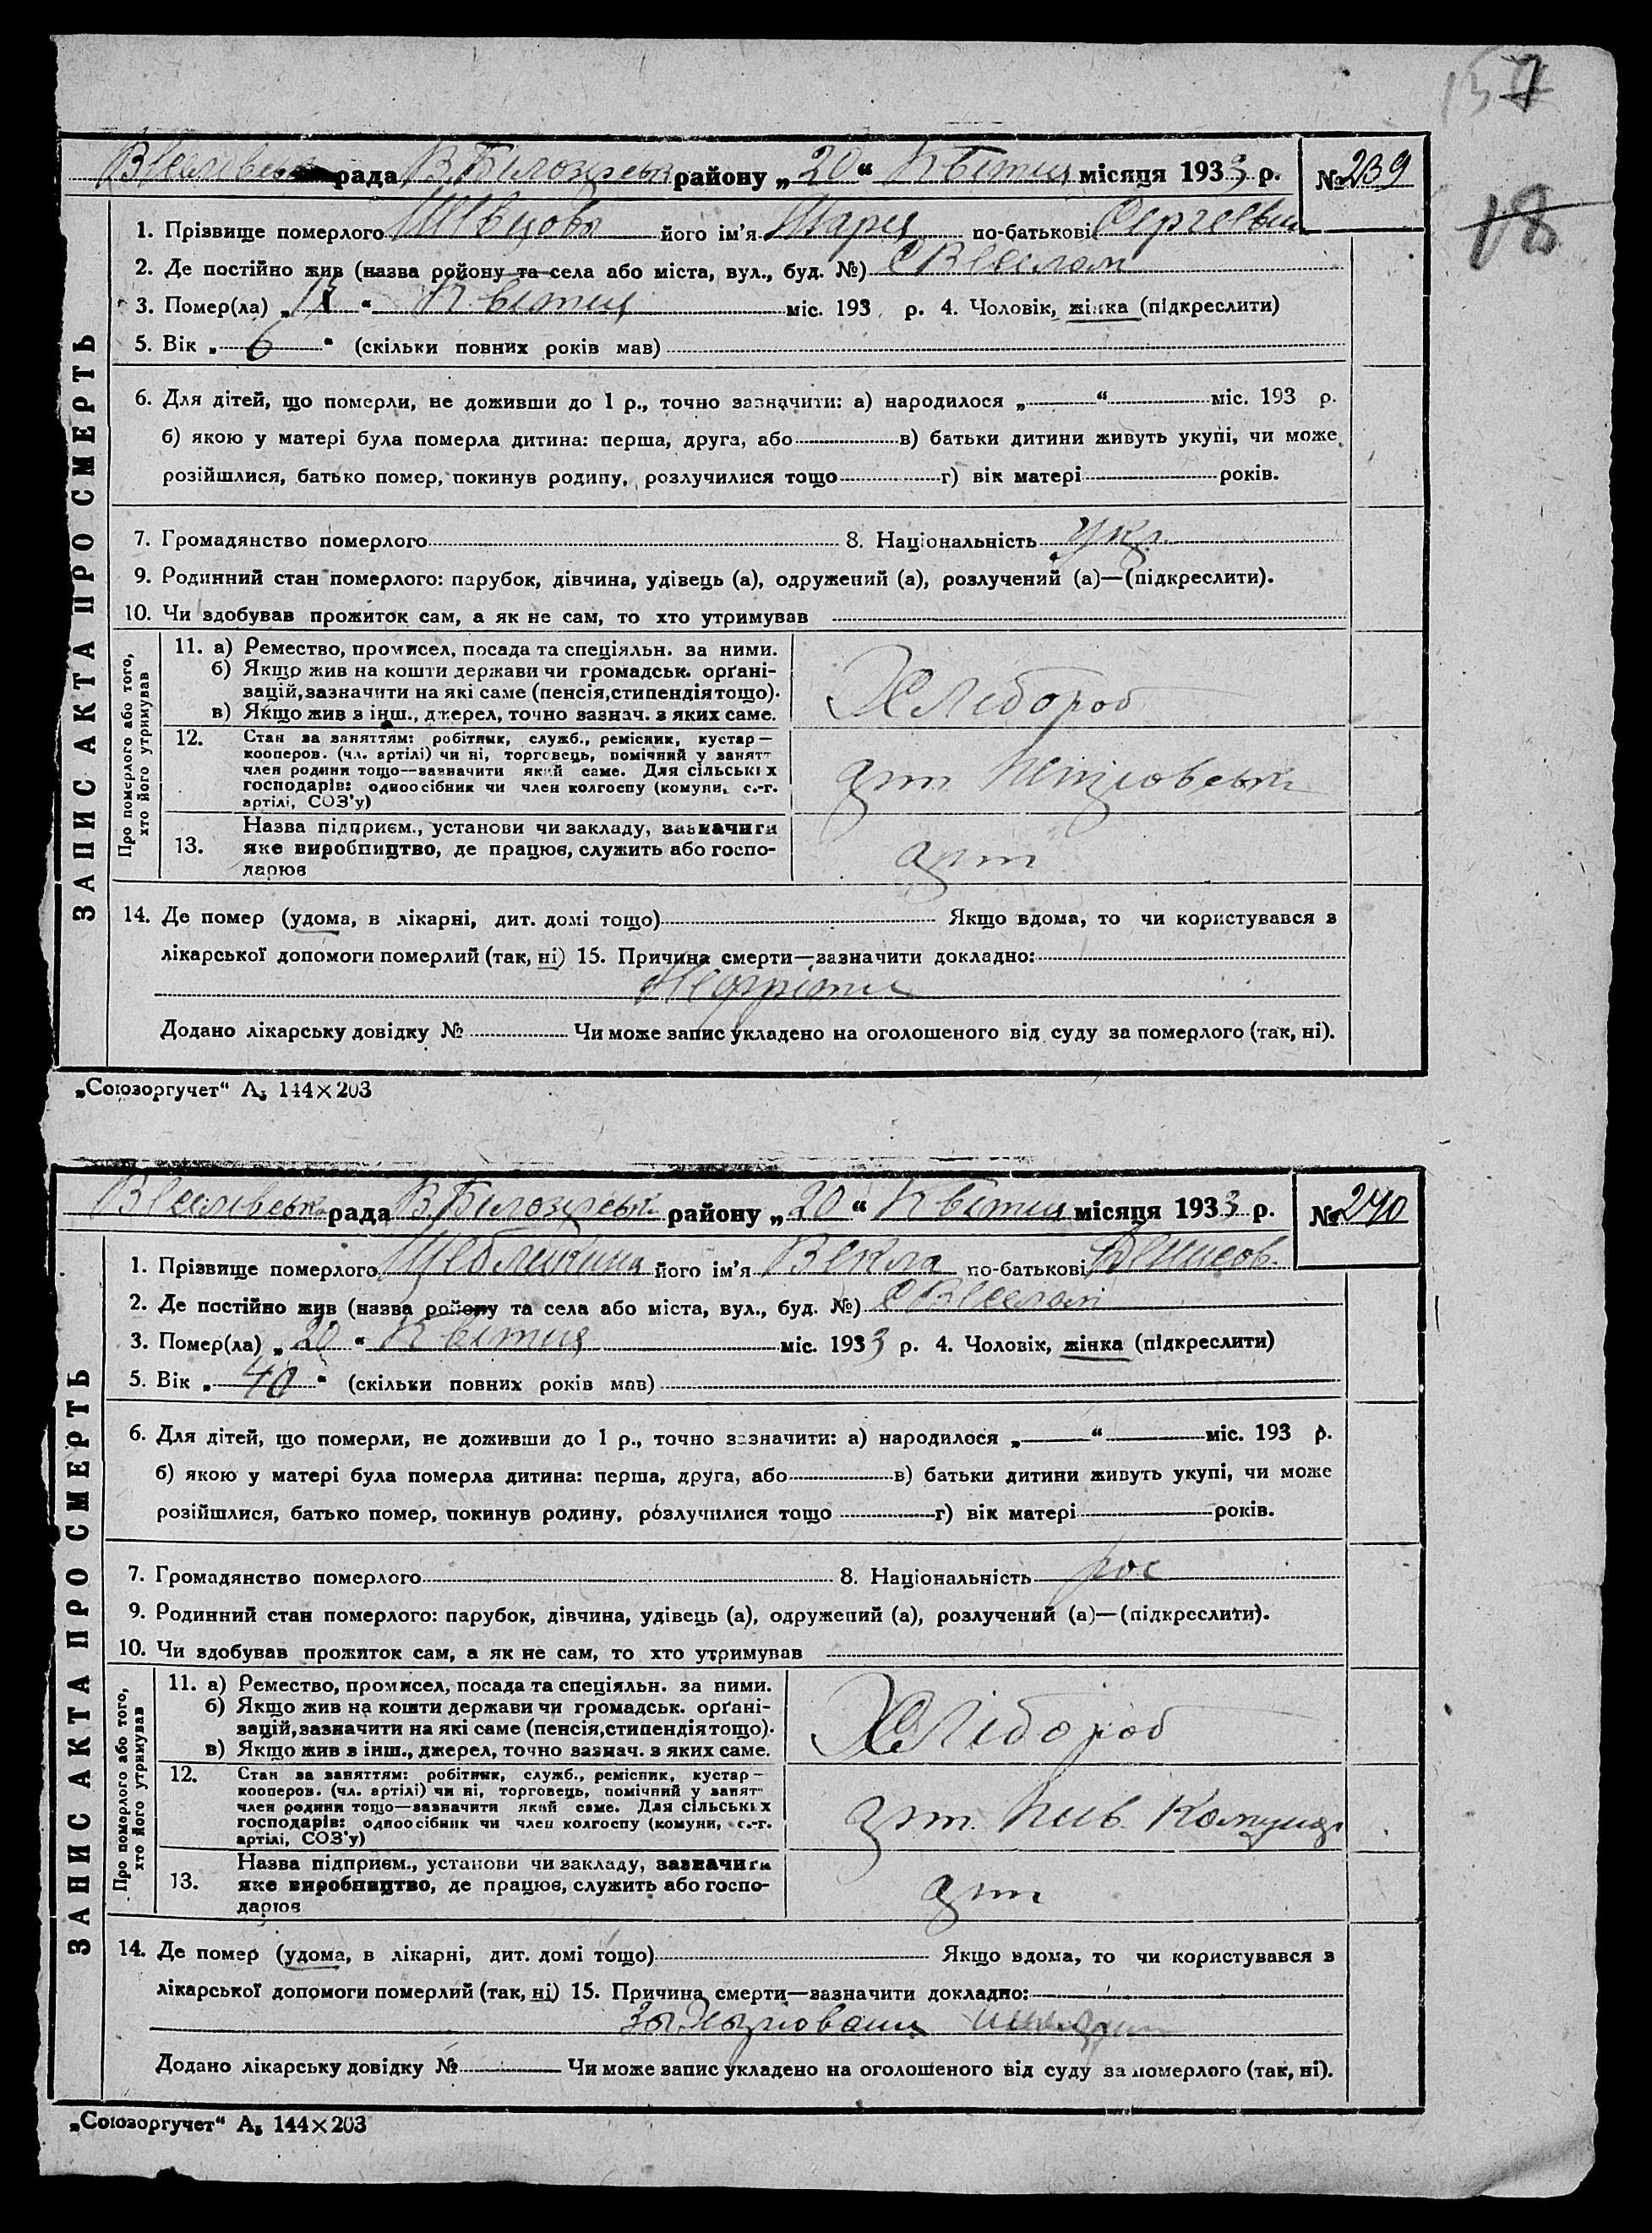 157
18
рада В. Білозірськ району „ 20 “ Квітня місяця 1933 р. № 239
1. Прізвище померлого Швцова його ім’я Марія по-батькові
2. Де постійно жив (назва району та села або міста, вул., буд. №)
3. Помер(ла) „ “ Квітня міс. 193 р. 4. Чоловік, жінка (підкреслити)
5. Вік „ 6 “ (скільки повних років мав)
6. Для дітей, що померли, не доживши до 1 р., точно зазначити: а) народилося „ “ міс. 193 р.
б) якою у матері була померла дитина: перша, друга, або в) батьки дитини живуть укупі, чи може
розійшлися, батько помер, покинув родину, розлучилися тощо г) вік матері років.
7. Громадянство померлого 8. Національність укр.
9. Родинний стан померлого: парубок, дівчина, удівець (а), одружений (а), розлучений (а)—(підкреслити).
10. Чи здобував прожиток сам, а як не сам, то хто утримував
ЗАПИС АКТА ПРО СМЕРТЬ
Про померлого або того,
хто його утримував
11. а) Ремество, промисел, посада та спеціяльн. за ними.
б) Якщо жив на кошти держави чи громадськ. орґані-
зацій, зазначити на які саме (пенсія, стипендія тощо).
в) Якщо жив з інш., джерел, точно зазнач. з яких саме.
Хлібороб
12. Стан за заняттям: робітник, служб., ремісник, кустар—
кооперов. (чл. артілі) чи ні, торговець, помічний у занят
член родини тощо—зазначити який саме. Для сільських
господарів: одноосібник чи член колгоспу (комуни, с.-г.
артілі, СОЗ’у)
арт.
13. Назва підприєм., установи чи закладу, зазначити
яке виробництво, де працює, служить або госпо-
дарює
арт
14. Де помер (удома, в лікарні, дит. домі тощо) Якщо вдома, то чи користувався з
лікарської допомоги померлий (так, ні) 15. Причина смерти—зазначити докладно:
Додано лікарську довідку № Чи може запис укладено на оголошеного від суду за померлого (так, ні).
„Союзоргучет“ А₅ 144×203
рада В. Білозірськ району „ 20 “ Квітня місяця 1933 р. № 240
1. Прізвище померлого його ім’я Векла по-батькові Денисов.
2. Де постійно жив (назва району та села або міста, вул., буд. №)
3. Помер(ла) „ 20 “ Квітня міс. 1933 р. 4. Чоловік, жінка (підкреслити)
5. Вік „ 40 “ (скільки повних років мав)
6. Для дітей, що померли, не доживши до 1 р., точно зазначити: а) народилося „ “ міс. 193 р.
б) якою у матері була померла дитина: перша, друга, або в) батьки дитини живуть укупі, чи може
розійшлися, батько помер, покинув родину, розлучилися тощо г) вік матері років.
7. Громадянство померлого 8. Національність рос
9. Родинний стан померлого: парубок, дівчина, удівець (а), одружений (а), розлучений (а)—(підкреслити).
10. Чи здобував прожиток сам, а як не сам, то хто утримував
ЗАПИС АКТА ПРО СМЕРТЬ
Про померлого або того,
хто його утримував
11. а) Ремество, промисел, посада та спеціяльн. за ними.
б) Якщо жив на кошти держави чи громадськ. орґані-
зацій, зазначити на які саме (пенсія, стипендія тощо).
в) Якщо жив з інш., джерел, точно зазнач. з яких саме.
Хлібороб
12. Стан за заняттям: робітник, служб., ремісник, кустар—
кооперов. (чл. артілі) чи ні, торговець, помічний у занят
член родини тощо—зазначити який саме. Для сільських
господарів: одноосібник чи член колгоспу (комуни, с.-г.
артілі, СОЗ’у)
арт.
13. Назва підприєм., установи чи закладу, зазначити
яке виробництво, де працює, служить або госпо-
дарює
арт
14. Де помер (удома, в лікарні, дит. домі тощо) Якщо вдома, то чи користувався з
лікарської допомоги померлий (так, ні) 15. Причина смерти—зазначити докладно:
Додано лікарську довідку № Чи може запис укладено на оголошеного від суду за померлого (так, ні).
„Союзоргучет“ А₅ 144×203